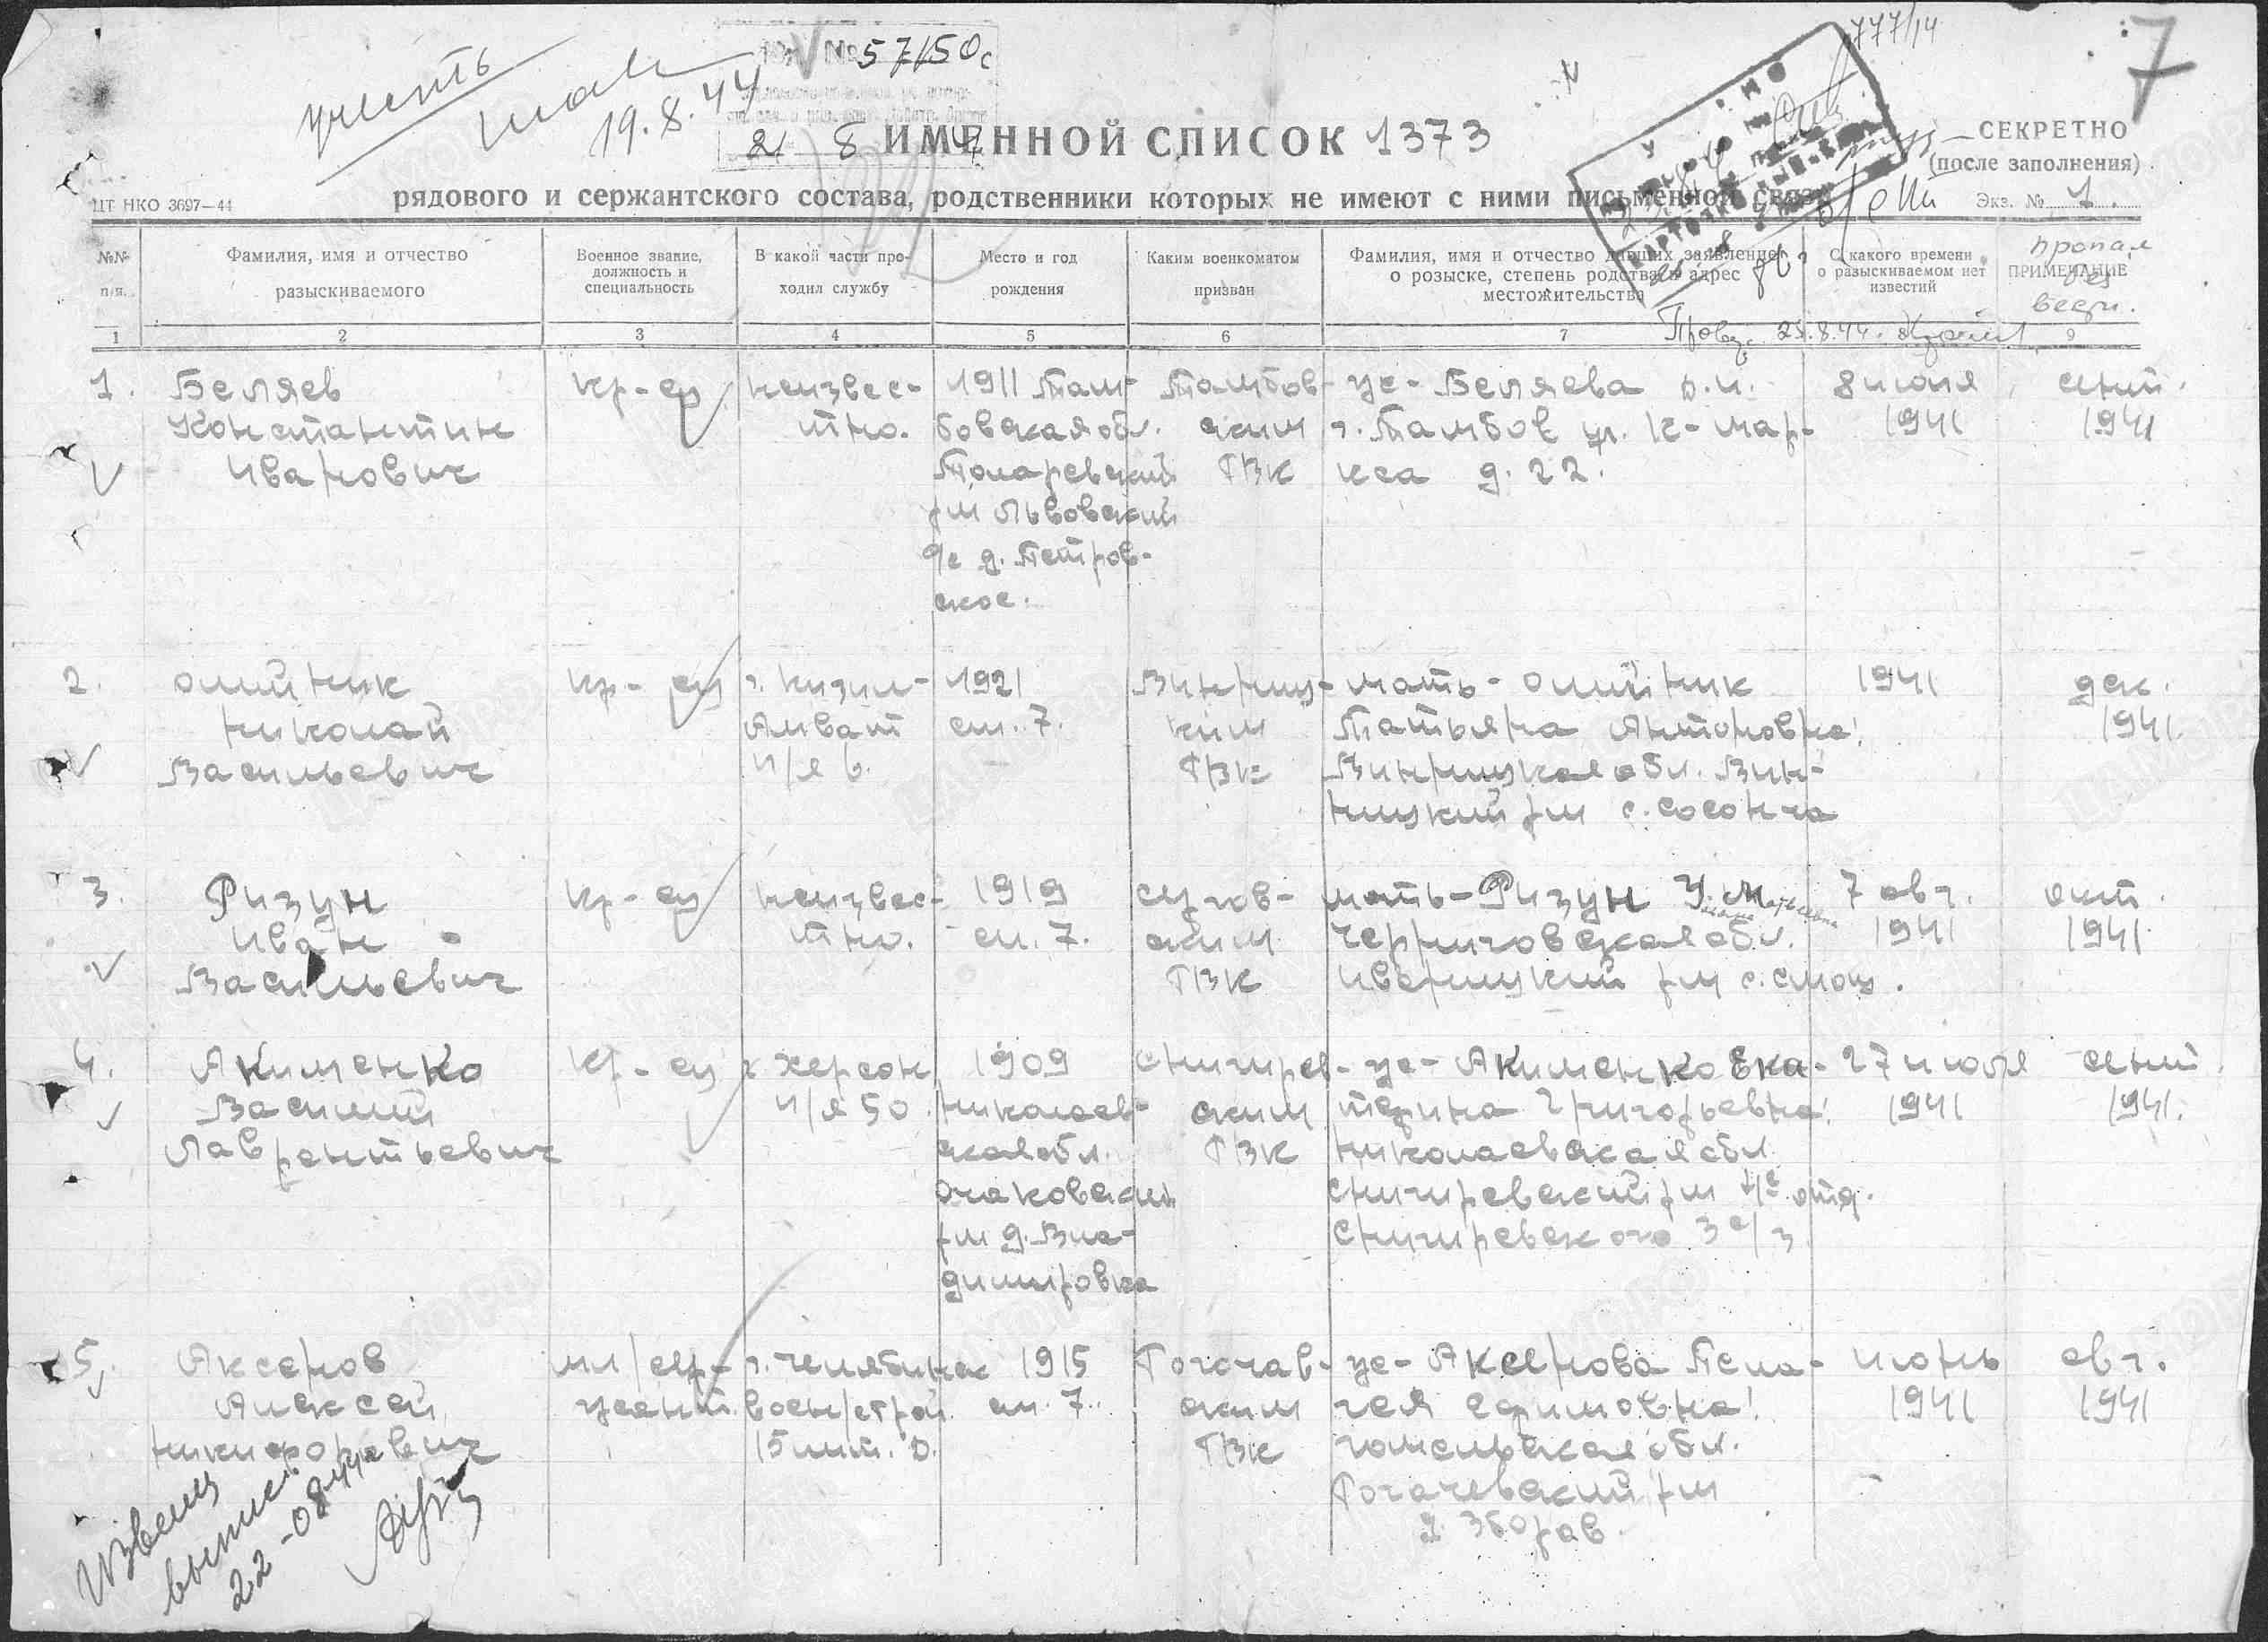 777/14
7
учесть
№ 57150с
19.8.44
21 8 44
ИМЕННОЙ СПИСОК 1373
СЕКРЕТНО
(после заполнения)
ЦТ НКО 3697—44
рядового и сержантского состава, родственники которых не имеют с ними письменной связи
Экз. № 1.
№№ п/я.
Фамилия, имя и отчество разыскиваемого
Военное звание, должность и специальность
В какой части проходил службу
Место и год рождения
Каким военкоматом призван
Фамилия, имя и отчество давших заявление о розыске, степень родства и адрес местожительства
С какого времени о разыскиваемом нет известий
ПРИМЕЧАНИЕ
пропал без вести.
1 2 3 4 5 6 7 9
1. Беляев кр-ец неизвес- 1911 Там- Тамбов- же- Беляева 8 июля сент.
Константин тно. бовская обл. ским г. Тамбов ул. К-Мар- 1941 1941
Иванович Токаревский ГВК кса д. 22.
р-н Львовский
с/с д. Петров-
ское.
2. Олийник кр-ец г. Кизил- 1921 Винниц- мать- Олийник 1941 дек.
Николай Арват см. 7. ким Татьяна Антоновна 1941.
Васильевич п/я 6. ГВК Винницкая обл. Вин-
ницкий р-н с. Сосонча
3. Ризун кр-ец неизвес- 1919 мать- Ризун У. М. 7 авг. окт.
Иван тно. см. 7. ским Черниговская обл. 1941 1941
Васильевич ГВК р-н с.
4. Акименко кр-ец г. Херсон 1909 Снигирев- же- Акименко Ека- 27 июля сент.
Василий п/я 50. Николаев- ским терина Григорьевна 1941 1941.
Лаврентьевич ская обл. ГВК Николаевская обл.
Очаковский Снигиревский р-н отд.
р-н д. Вла- Снигиревского
димировка
5. Аксенов мл/сер- г. Челябинск 1915 Рогачев- же- Аксенова Пела- июнь авг.
Алексей жант. см. 7. ским гея Ефимовна 1941 1941
Никифорович ГВК Гомельская обл.
Рогачевский р-н
д. Зборав
Извещ
выписан
22-08-44г